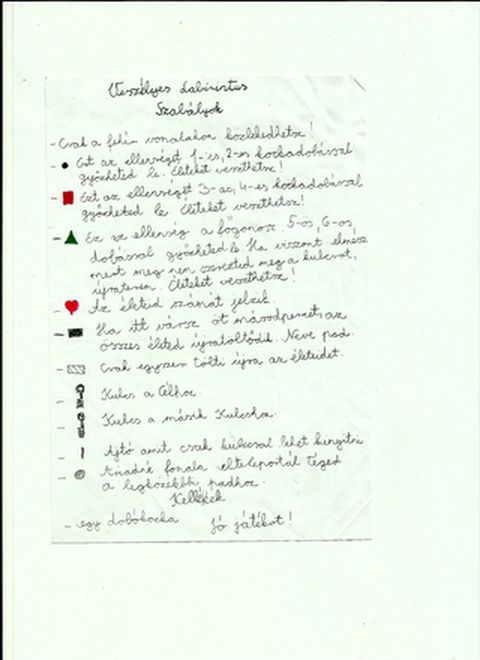 Veszélyes Labirintus
Szabályok
- Csak a fehér vonalakon közlekedhetsz!
- Ezt az ellenséget 1-es, 2-es kockadobással
győzheted le. Életeket veszthetsz!
- Ezt az ellenséget 3-as, 4-es kockadobással
győzheted le. Életeket veszthetsz!
- Ez az ellenség a főgonosz 5-ös, 6-os
dobással győzheted le. Ha viszont elmész
mert még nem szerezted meg a kulcsot,
újraterem. Életeket veszthetsz!
- Az életeid számát jelzik.
- Ha itt vársz öt másodpercet, az
összes életed újratöltődik. Neve pad.
- Csak egyszer tölti újra az életeidet.
- Kulcs a Célhoz.
- Kulcs a másik Kulcshoz.
- Ajtó amit csak kulccsal lehet kinyitni
- Ariadné fonala elteleportál téged
a legközelebbi padhoz.
Kellékek
- egy dobókocka Jó játékot!